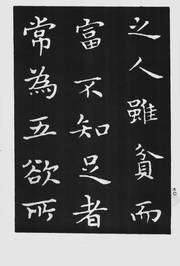 之人雖貧而
富不知足者
常為五欲所
九〇